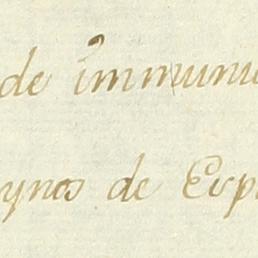 de immuni
ynos de Esp